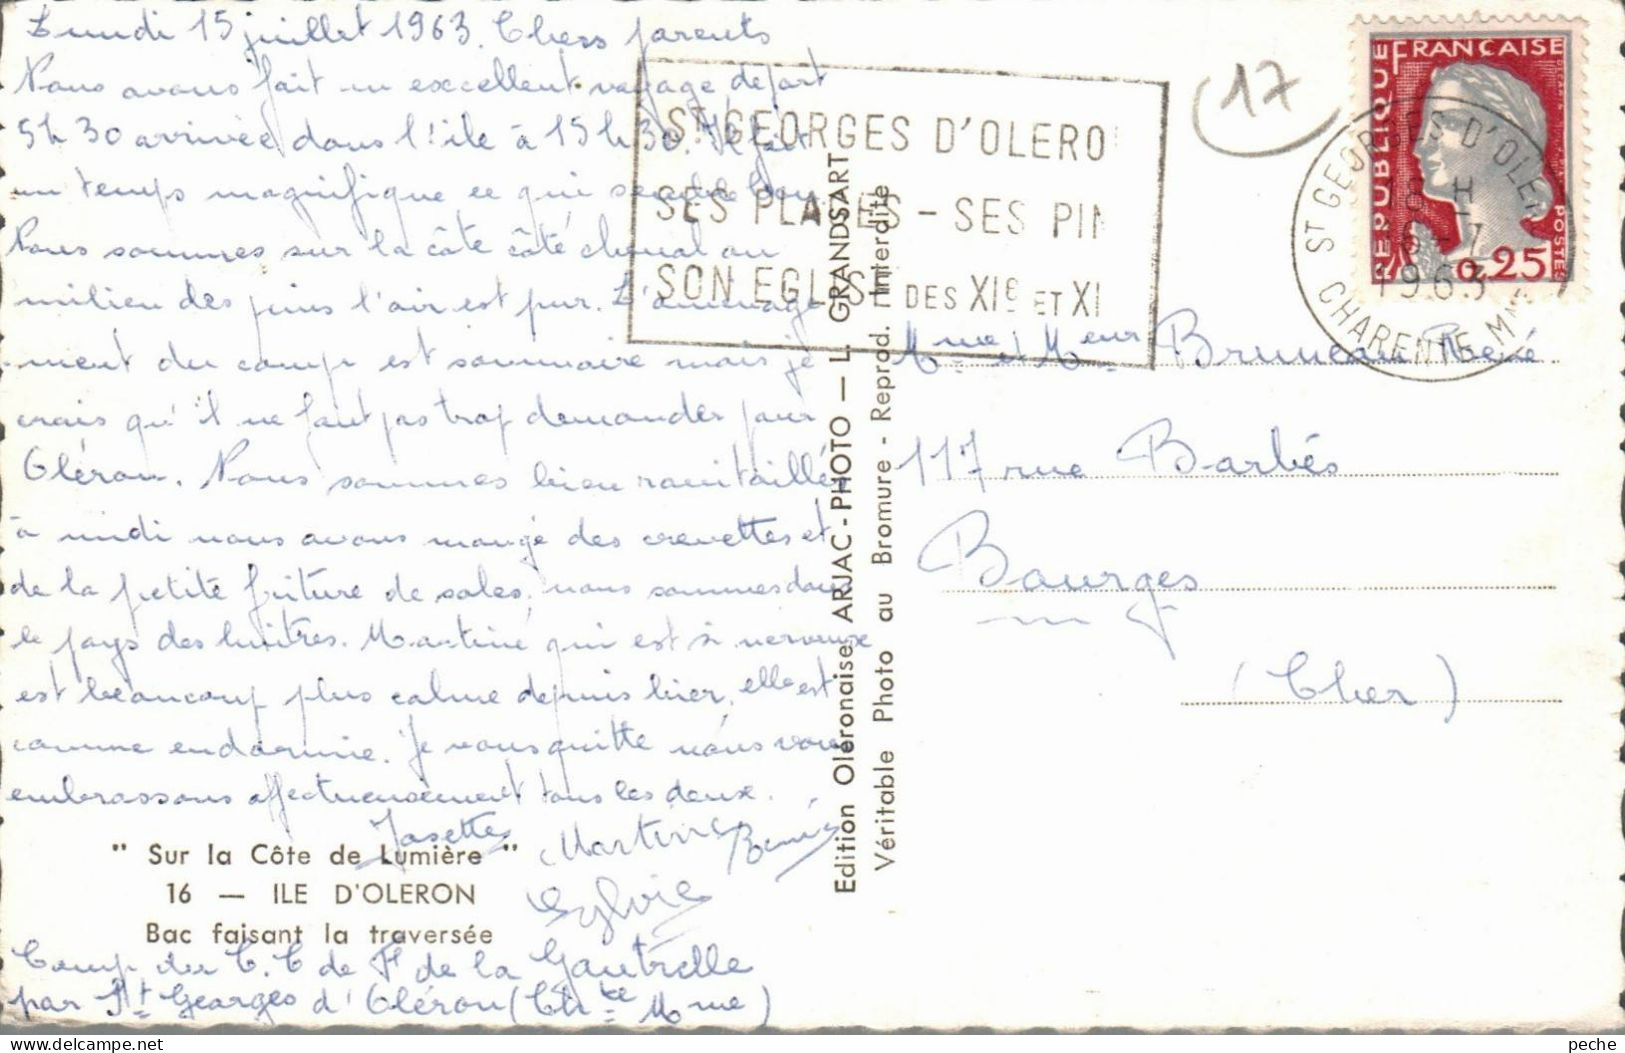 Lundi 15 juillet 1963. Chers parents
Nous avons fait un excellent voyage départ
5h30 arrivée dans l'ile à 15h30. Il fait
un temps magnifique ce qui semble bon.
Nous sommes sur la côte côté chenal au
milieu des pins l'air est pur. L'aménage
ment du camp est sommaire mais je
crois qu'il ne faut pas trop demander pour
Oléron. Nous sommes bien ravitaillés
à midi nous avons mangé des crevettes et
de la petite friture de soles, nous sommes dans
le pays des huitres. Martine qui est si nerveuse
est beaucoup plus calme depuis hier, elle est
comme endormie. Je vous quitte nous vous
embrassons affectueusement tous les deux.
Josette Martine Rémis
Sylvie
" Sur la Côte de Lumière "
16 — ILE D'OLERON
Bac faisant la traversée
Camp du C.C de F de la Gautrelle
par St Georges d'Oléron (Ch te Mme)
Edition Oléronaise, ARJAC-PHOTO — L. GRANDSART
Véritable Photo au Bromure - Reprod. Interdite
ST GEORGES D'OLERO
SES PLAGES - SES PIN
SON EGLISE DES XIe ET XI
17
REPUBLIQUE FRANÇAISE
POSTES
0,25
ST GEORGES D'OLERON
18 H
16-7
1963
CHARENTE MME
Mme et Meur Bruneau René
117 rue Barbés
Bourges
(Cher)
peche